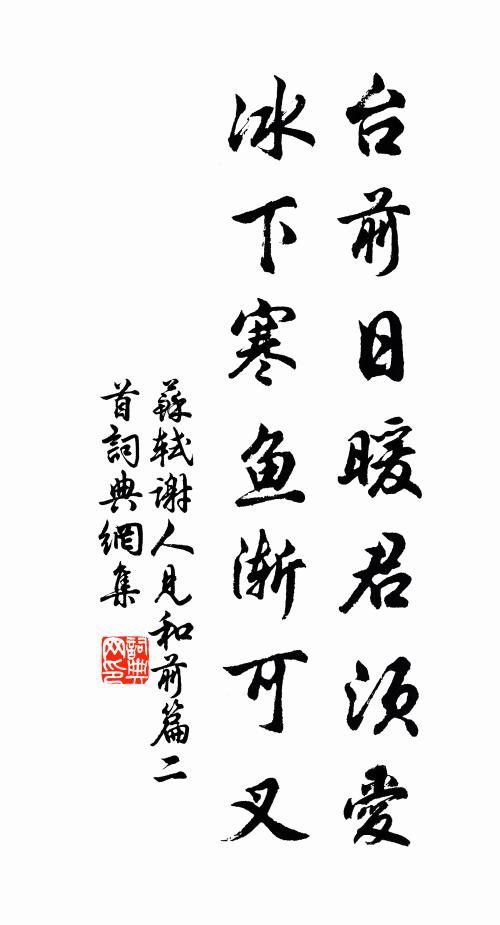 台前日暖君須愛
冰下寒鱼漸可叉
蘇軾謝人見和前篇二
首詞典網集
詞典
网印